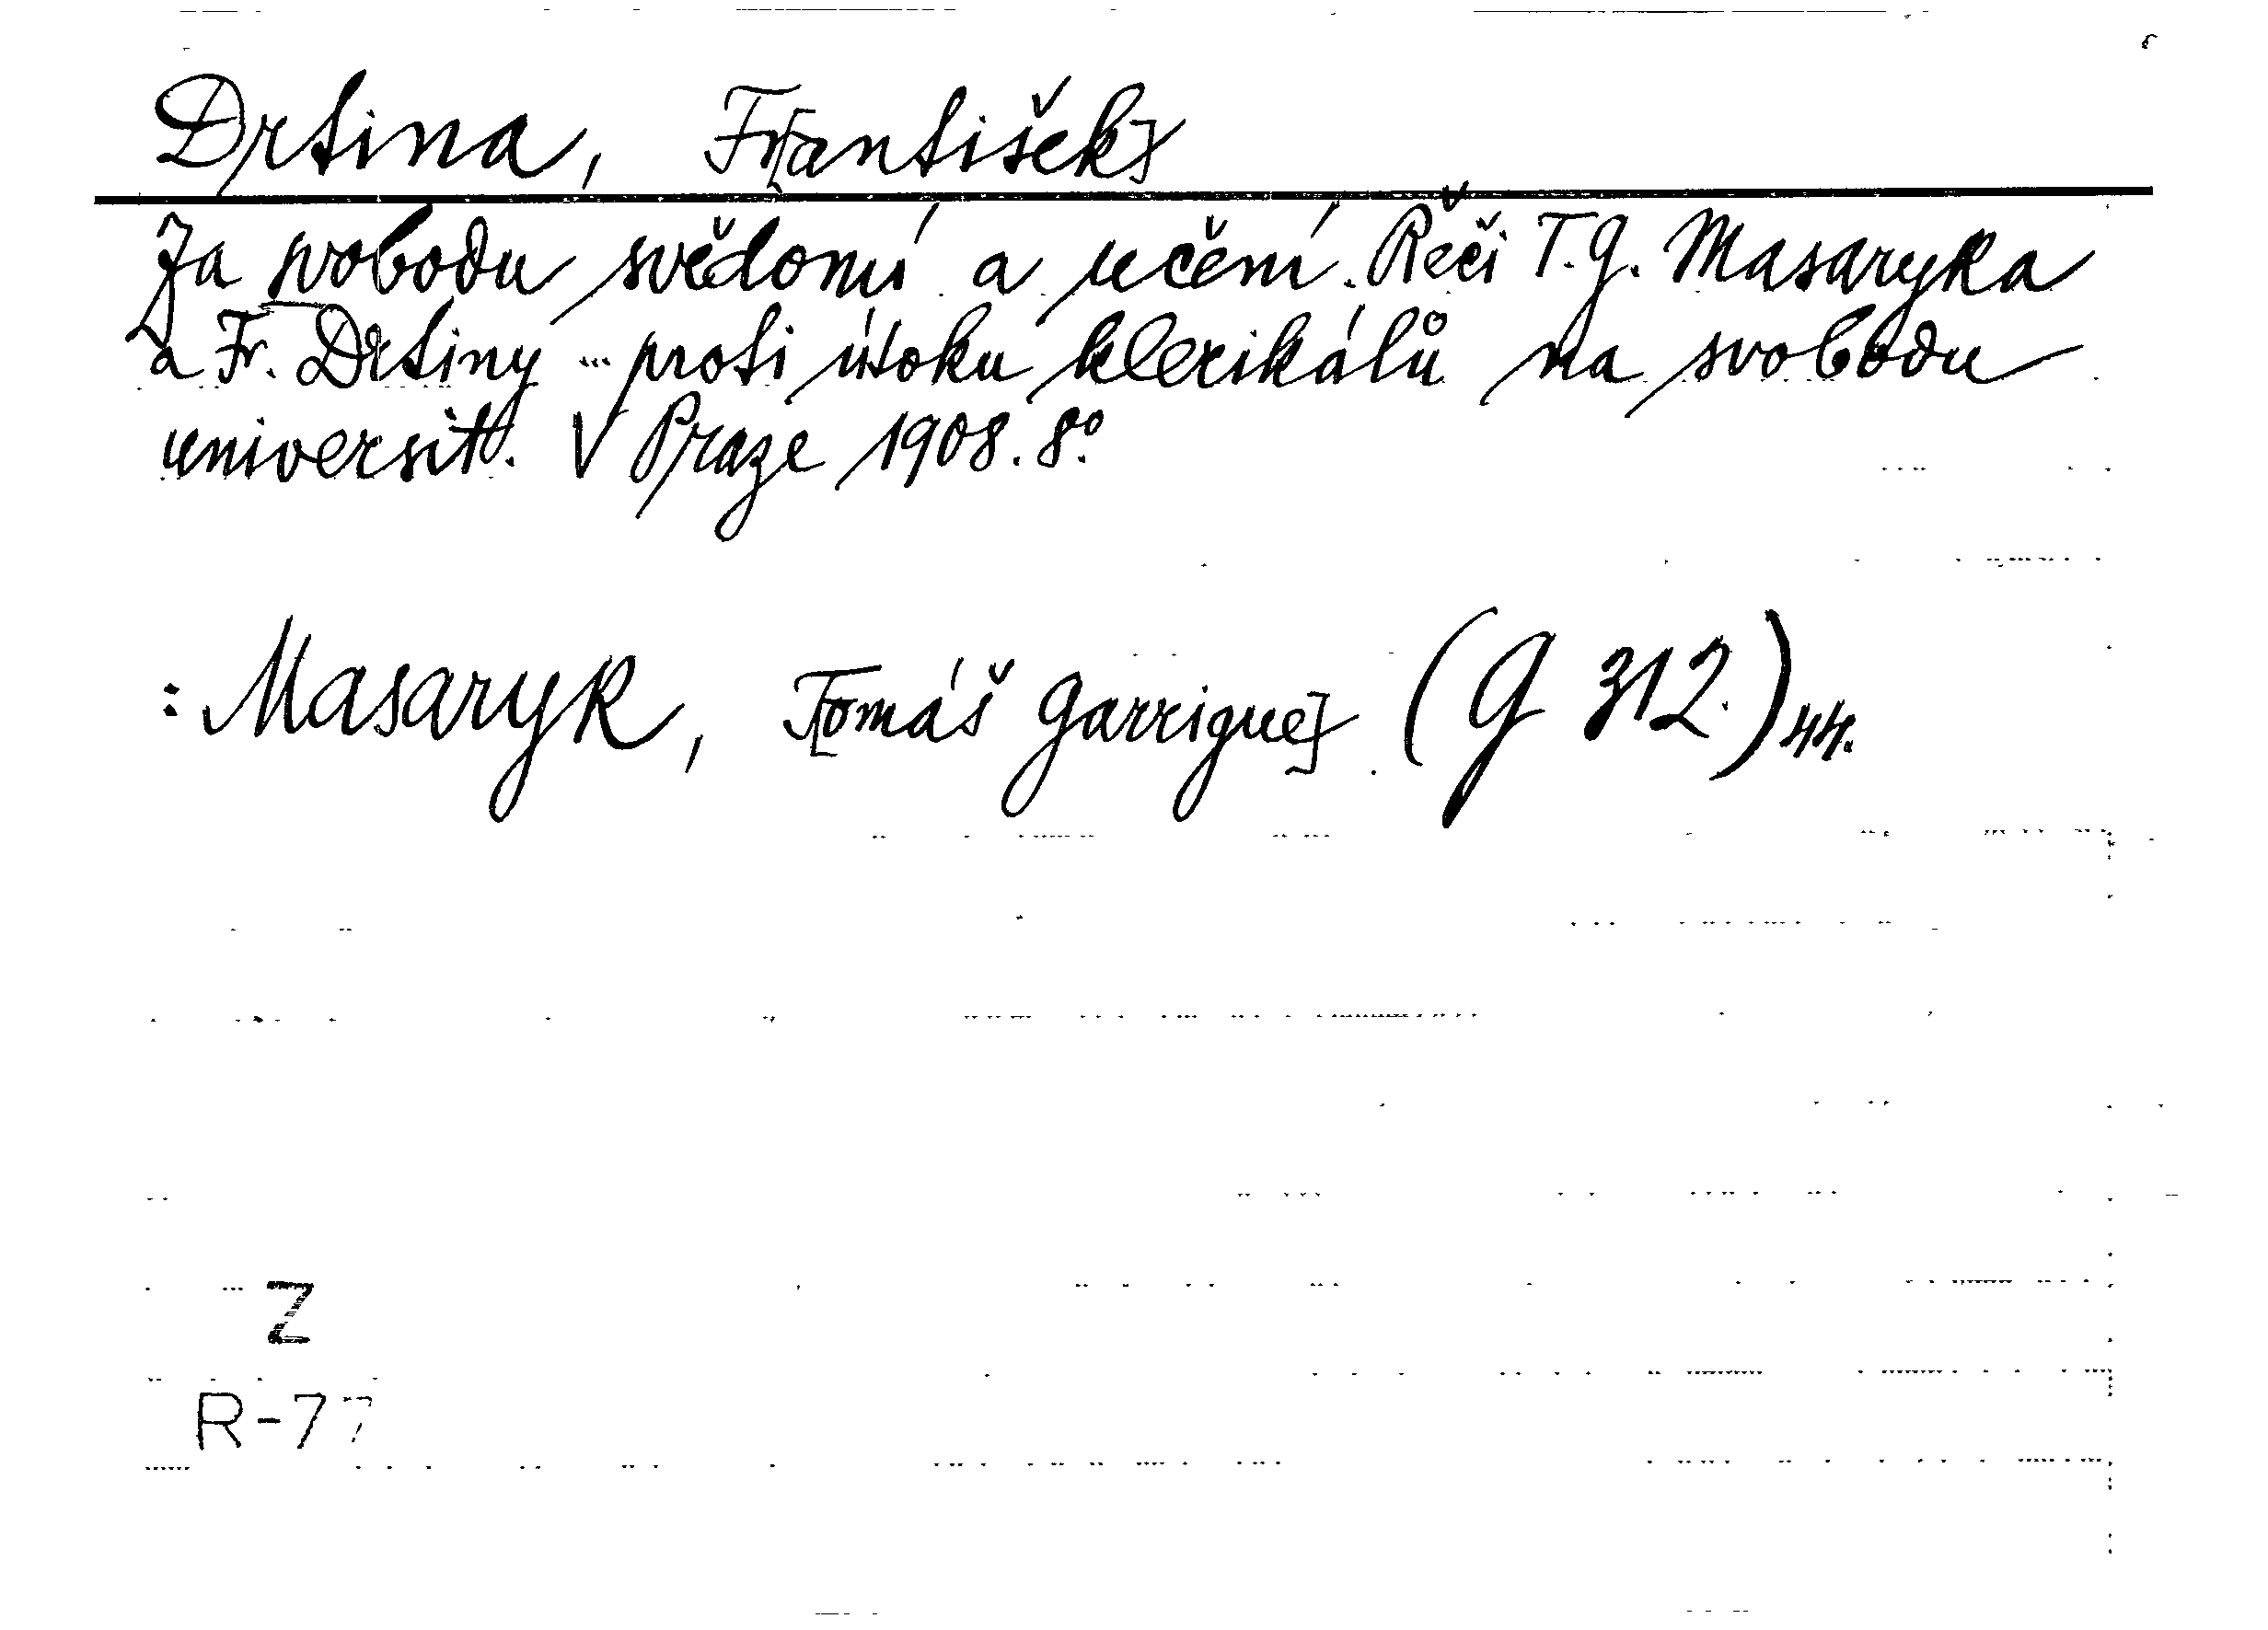 Drtina, Fr[antišek]
Za svobodu svědomí a učení. Řeči T. G. Masaryka
a Fr. Drtiny ... proti útoku klerikálů na svobodu
universit. V Praze 1908. 8°.
: Masaryk, T[omáš Garrigue] (G 312.)44.
Z
R-77